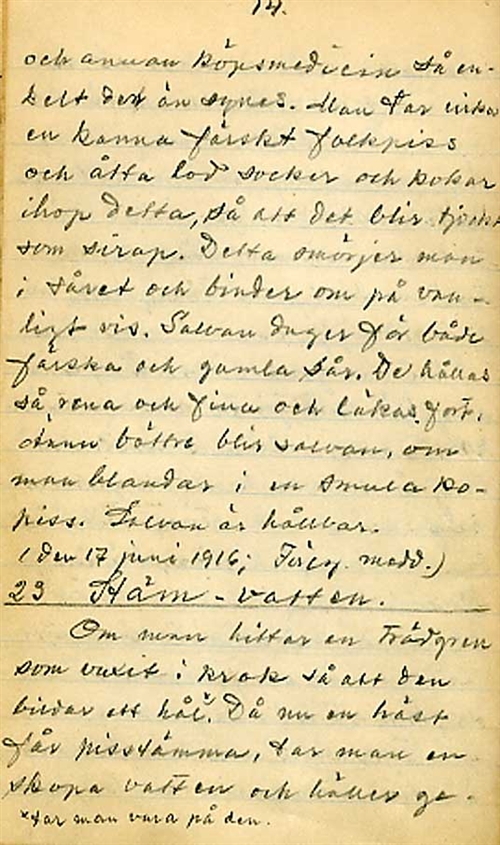 14.
och annan köpsmedicin så en-
kelt det än synes. Man tar cirka
en kanna färskt folkpiss
och åtta lod socker och kokar
ihop detta, så att det blir tjockt
som sirap. Detta smörjer man
i såret och binder om på van-
ligt vis. Salvan duger för både
färska och gamla sår. De hållas
så rena och fina och läkas fort.
Ännu bättre blir salvan, om
man blandar i en smula ko-
piss. Salvan är hållbar.
(den 17 juni 1916; medd.)
23 Stäm-vatten.
Om man hittar en trädgren
som vuxit i krok så att den
bildar ett hål.x Då nu en häst
får pisstämma, tar man en
skopa vatten och häller ge-
x tar man vara på den.